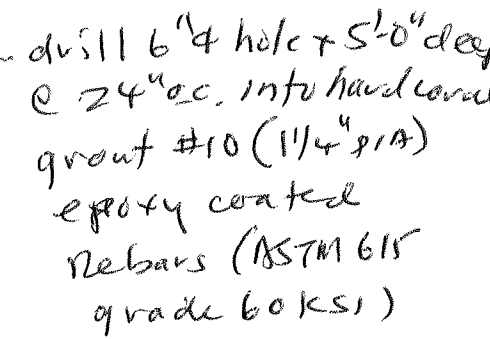 - drill 6"ϕ hole x 5'-0" deep
@ 24" o.c. into hard coral
grout #10 (1 1/4" DIA)
epoxy coated
Rebars (ASTM 615
grade 60 ksi)